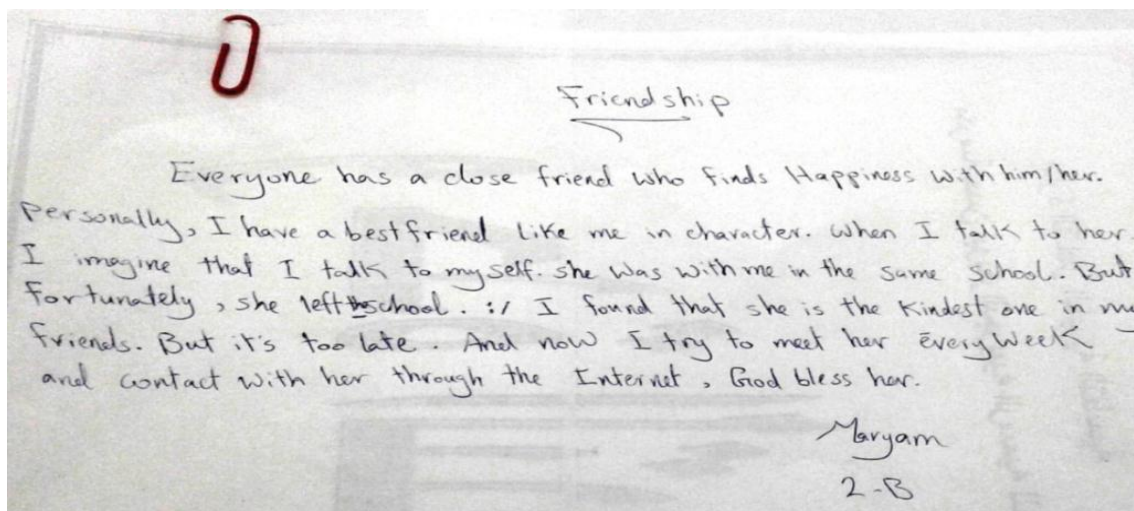 Friendship
Everyone has a close friend who finds Happiness with him/her.
Personally, I have a best friend Like me in character. When I talk to her.
I imagine that I talk to my self. she was with me in the same school. But
fortunately, she left the school. :/ I found that she is the kindest one in my
friends. But it's too late. And now I try to meet her every week
and contact with her through the Internet, God bless her.
Maryam
2-B